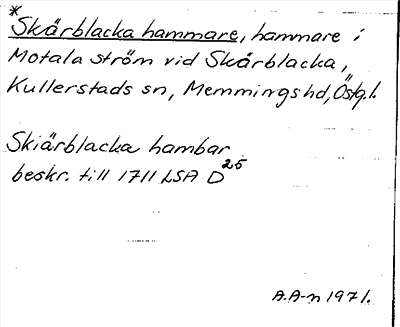 *
Skärblacka hammare, hammare i
Motala ström vid Skärblacka,
Kullerstads sn, Memmings hd, Östg.l.
Skiärblacka hambar
beskr. till 1711 LSA D 25
A.A-n 1971.